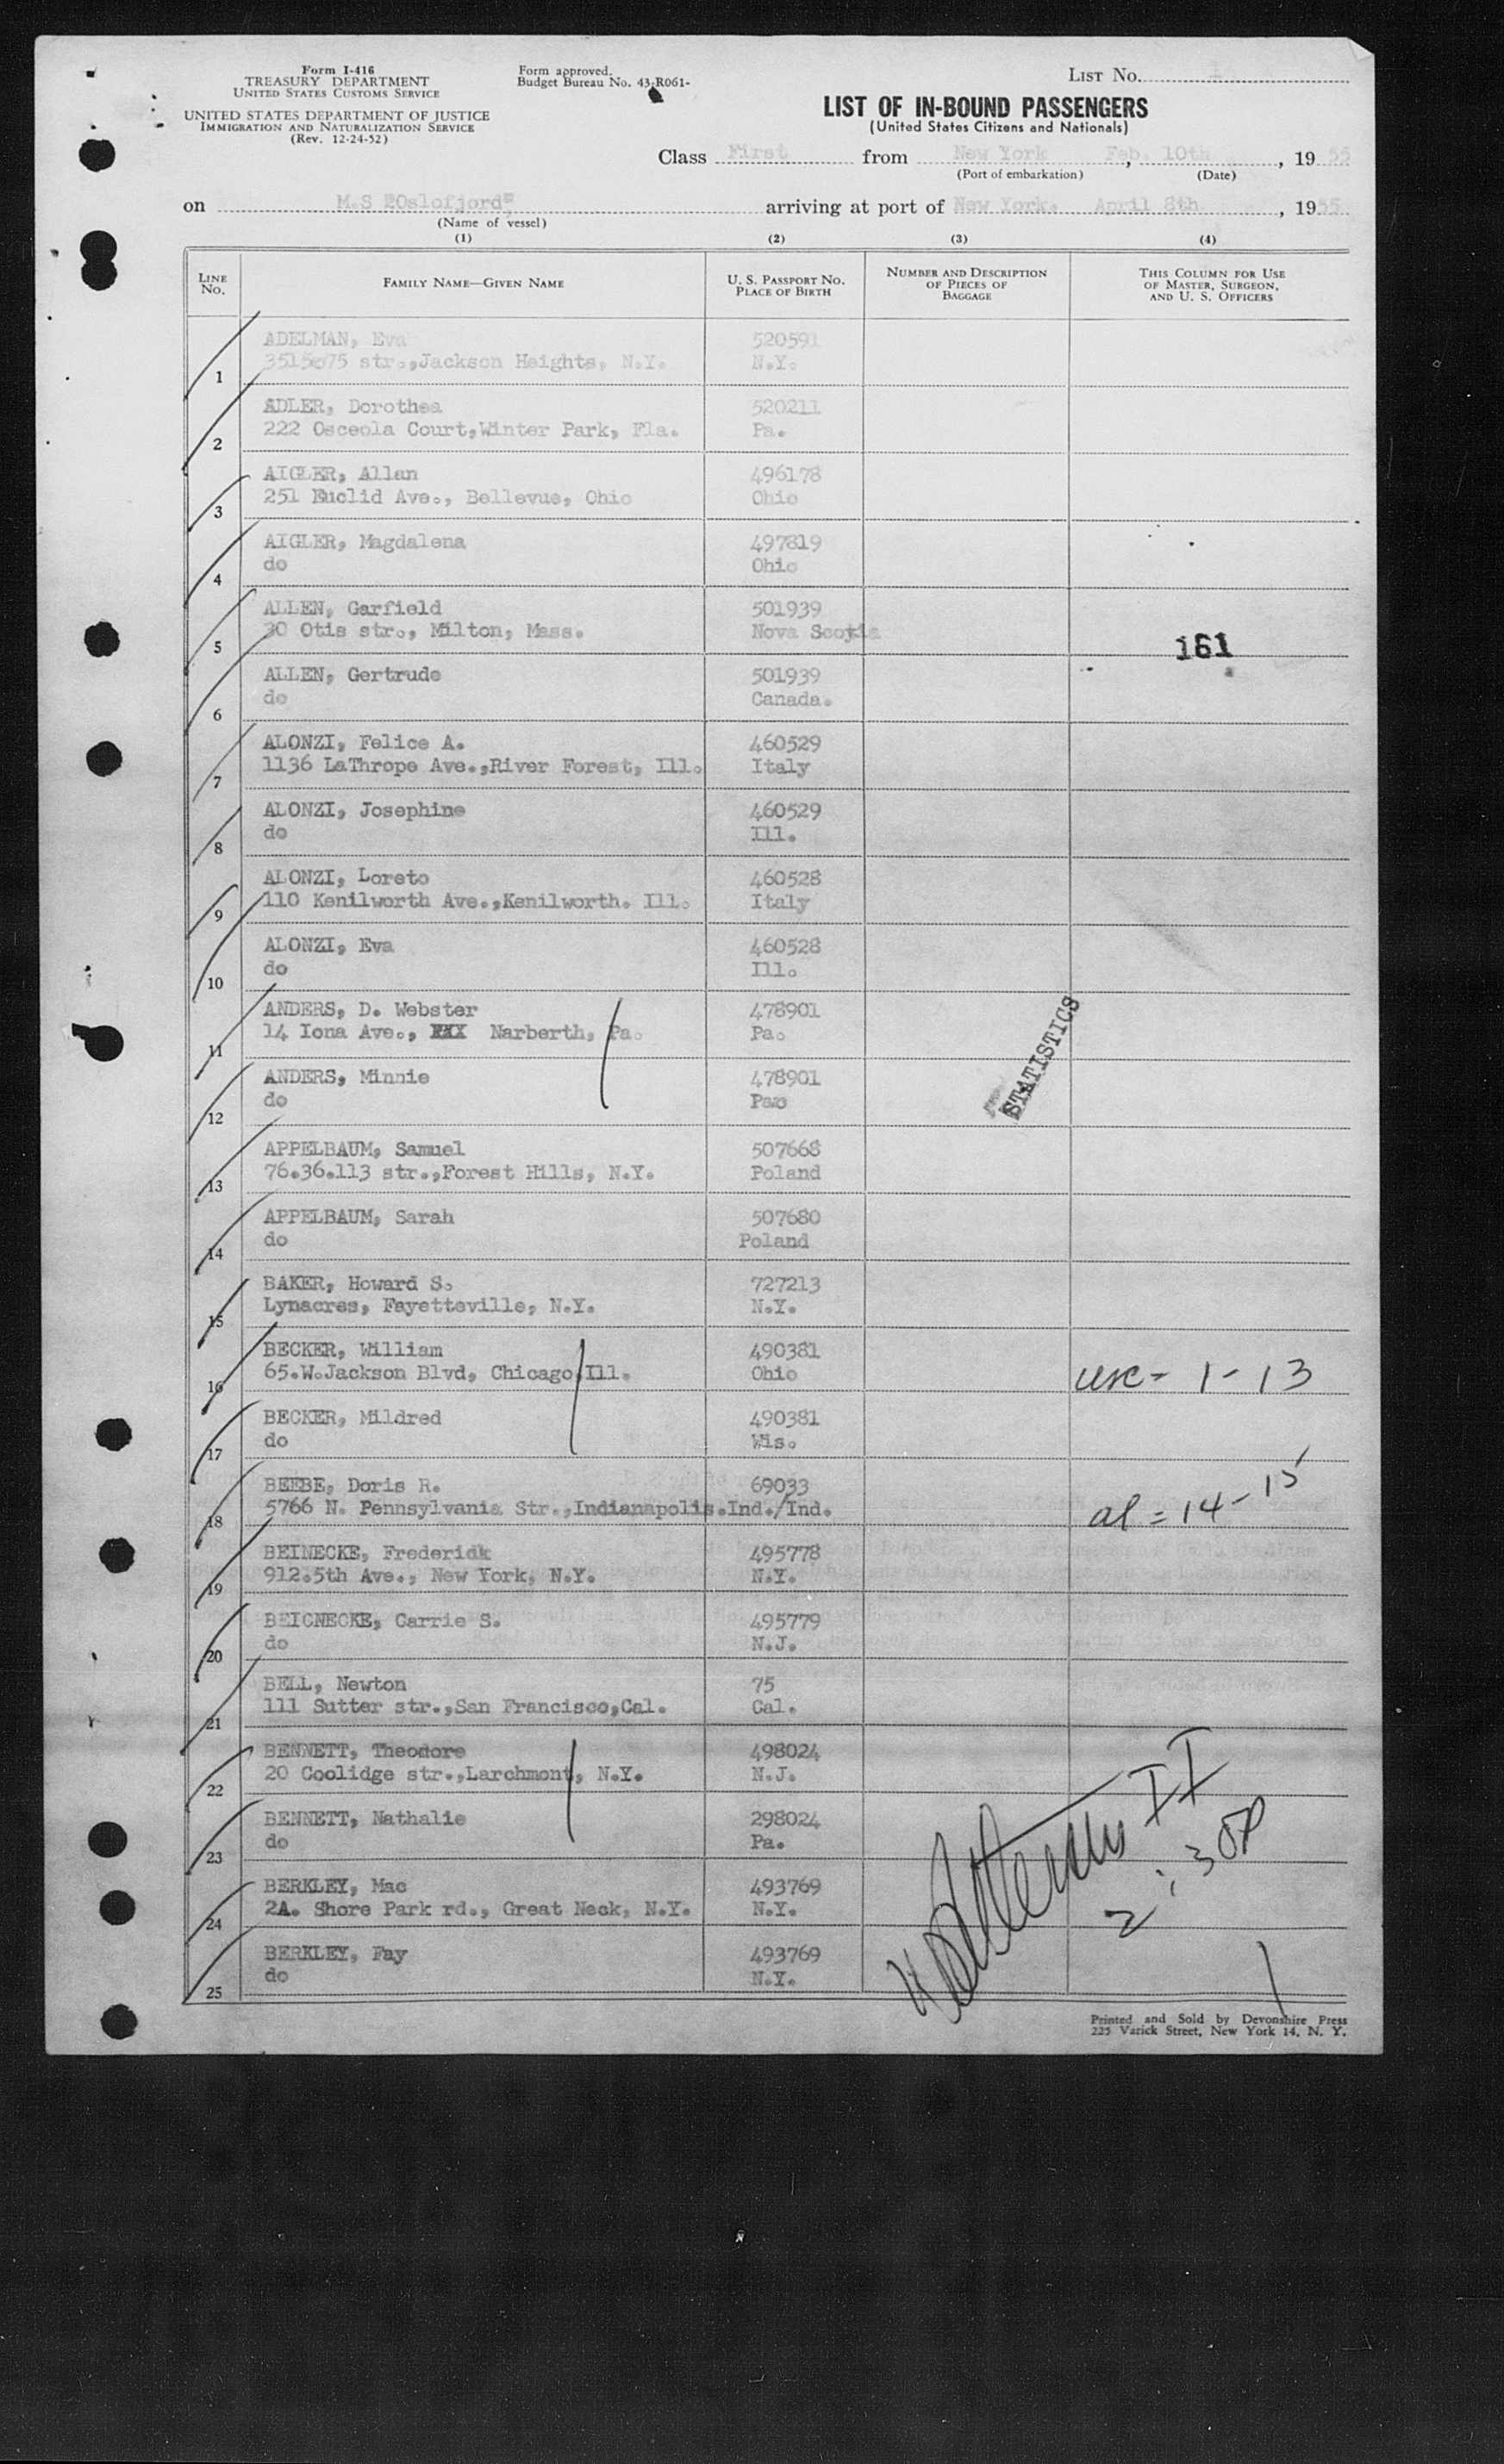 Form I-416
TREASURY DEPARTMENT
UNITED STATES CUSTOMS SERVICE
UNITED STATES DEPARTMENT OF JUSTICE
IMMIGRATION AND NATURALIZATION SERVICE
(Rev. 12-24-52)
Form approved.
Budget Bureau No. 43-R061-
LIST NO.
LIST OF IN-BOUND PASSENGERS
(United States Citizens and Nationals)
Class First from New York, Feb. 10th, 1955
(Port of embarkation) (Date)
on M.S "Oslofjord" arriving at port of New York. April 8th, 1955
(Name of vessel)
(1) (2) (3) (4)
LINE NO. FAMILY NAME—GIVEN NAME U. S. PASSPORT NO. PLACE OF BIRTH NUMBER AND DESCRIPTION OF PIECES OF BAGGAGE THIS COLUMN FOR USE OF MASTER, SURGEON, AND U. S. OFFICERS
ADELMAN, Eva 520591
1 str.,Jackson Heights, N.Y. N.Y.
ADLER, Dorothea 520211
2 222 Osceola Court,Winter Park, Fla. Pa.
AIGLER, Allan 496178
3 251 Euclid Ave., Bellevue, Ohio Ohio
AIGLER, Magdalena 497819
4 do Ohio
ALLEN, Garfield 501939
5 30 Otis str., Milton, Mass. Nova Scotia
161
ALLEN, Gertrude 501939
6 do Canada.
ALONZI, Felice A. 460529
7 1136 LaThrope Ave.,River Forest, Ill. Italy
ALONZI, Josephine 460529
8 do Ill.
ALONZI, Loreto 460528
9 110 Kenilworth Ave.,Kenilworth. Ill. Italy
ALONZI, Eva 460528
10 do Ill.
ANDERS, D. Webster 478901
11 14 Iona Ave., Narberth, Pa. Pa.
STATISTICS
ANDERS, Minnie 478901
12 do Pa
APPELBAUM, Samuel 507668
13 76.36.113 str.,Forest Hills, N.Y. Poland
APPELBAUM, Sarah 507680
14 do Poland
BAKER, Howard S. 727213
15 Lynacres, Fayetteville, N.Y. N.Y.
BECKER, William 490381
16 65.W.Jackson Blvd, Chicago,Ill. Ohio usc - 1 - 13
BECKER, Mildred 490381
17 do Wis.
BEEBE, Doris R. 69033
18 5766 N. Pennsylvania Str.,Indianapolis.Ind./Ind. al = 14 - 15
BEINECKE, Frederick 495778
19 912.5th Ave., New York, N.Y. N.Y.
BEICNECKE, Carrie S. 495779
20 do N.J.
BELL, Newton 75
21 111 Sutter str.,San Francisco,Cal. Cal.
BENNETT, Theodore 498024
22 20 Coolidge str.,Larchmont, N.Y. N.J.
BENNETT, Nathalie 298024
23 do Pa.
BERKLEY, Mac 493769
24 2A. Shore Park rd., Great Neck, N.Y. N.Y.
BERKLEY, Fay 493769
25 do N.Y.
II
Printed and Sold by Devonshire Press
225 Varick Street, New York 14, N. Y.